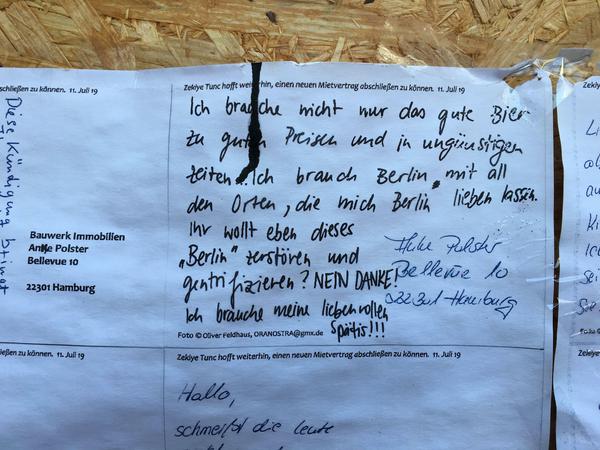 eßen zu können. 11. Juli 19
Diese Kündigung bringt
Bauwerk Immobilien
Anke Polster
Bellevue 10
22301 Hamburg
Zekiye Tunc hofft weiterhin, einen neuen Mietvertrag abschließen zu können. 11. Juli 19
Ich brauche nicht nur das gute Bier
zu guten Preisen und in ungünstigen
Zeiten. Ich brauch Berlin, mit all
den Orten, die mich Berlin lieben lassen.
Ihr wollt eben dieses
„Berlin" zerstören und
gentrifizieren? NEIN DANKE!
Ich brauche meine liebenvollen
Spätis!!!
Polster
Bellevue 10
Hamburg
Foto © Oliver Feldhaus, ORANOSTRA@gmx.de
eßen zu können. 11. Juli 19
Zekiye Tunc hofft weiterhin, einen neuen Mietvertrag abschließen zu können. 11. Juli 19
Hallo,
schmeißt die leute